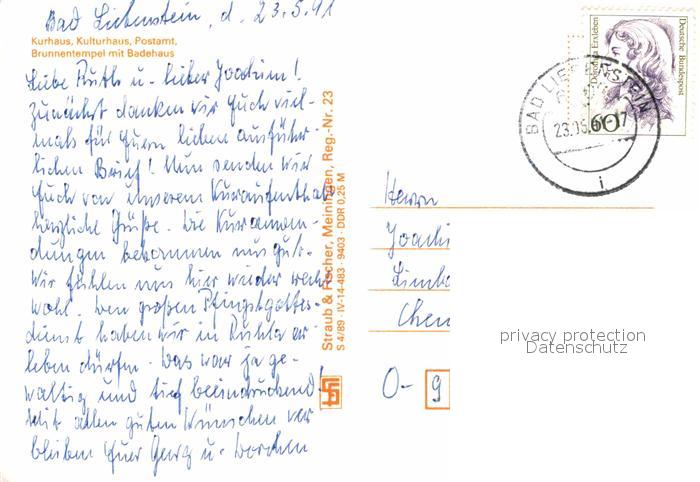 Bad Liebenstein, d. 23.5.91
Kurhaus, Kulturhaus, Postamt,
Brunnentempel mit Badehaus
Liebe Ruth u. lieber Joachim!
Zunächst danken wir Euch viel-
mals für Euern lieben ausführ-
lichen Brief! Nun senden wir
Euch von unserem Kuraufenthalt
herzliche Grüße. Die Kuranwen-
dungen bekommen uns gut.
Wir fühlen uns hier wieder recht
wohl. Den großen Pfingstgottes-
dienst haben wir in Ruhla er-
leben dürfen. Das war ja ge-
waltig und tief beeindruckend!
Mit allen guten Wünschen ver-
bleiben Euer Georg u.
Straub & Fischer, Meiningen, Reg.-Nr. 23
S 4/89 · IV-14-483 · 9403 · DDR 0,25 M
Deutsche Bundespost
Dorothea Erxleben
60
BAD LIEBENSTEIN
23.05.91-17
i
Herrn
Joachi
Limba
Chem
O- 9
privacy protection
Datenschutz